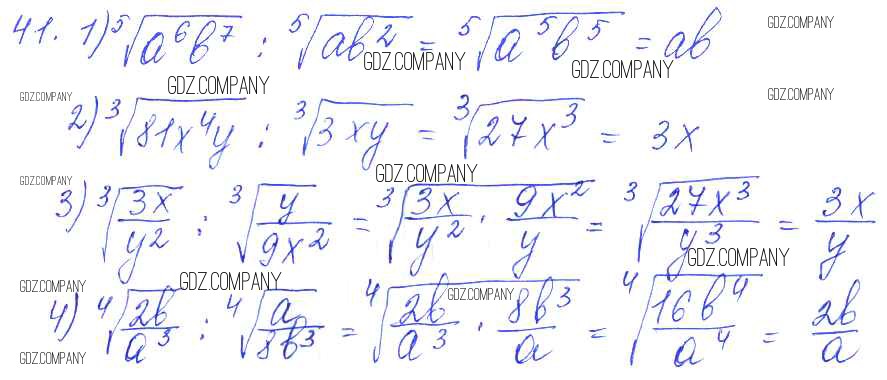 41. 1) ⁵√(a⁶b⁷) : ⁵√(ab²) = ⁵√(a⁵b⁵) = ab
GDZ.COMPANY
GDZ.COMPANY GDZ.COMPANY
GDZ.COMPANY GDZ.COMPANY GDZ.COMPANY
2) ³√(81x⁴y) : ³√(3xy) = ³√(27x³) = 3x
GDZ.COMPANY GDZ.COMPANY
3) ³√(3x/y²) : ³√(y/9x²) = ³√(3x/y² · 9x²/y) = ³√(27x³/y³) = 3x/y
GDZ.COMPANY
GDZ.COMPANY GDZ.COMPANY GDZ.COMPANY
4) ⁴√(2b/a³) : ⁴√(a/8b³) = ⁴√(2b/a³ · 8b³/a) = ⁴√(16b⁴/a⁴) = 2b/a
GDZ.COMPANY